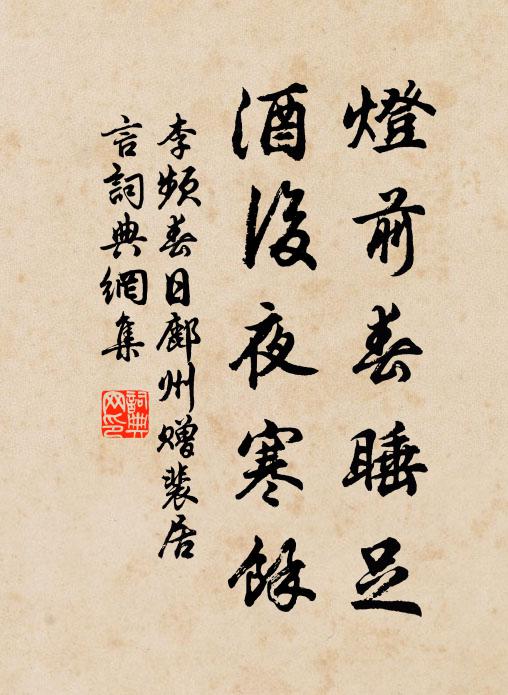 燈前春睡足
酒後夜寒餘
李頻春日鄜州贈裴居
言詞典網集
詞典
网印